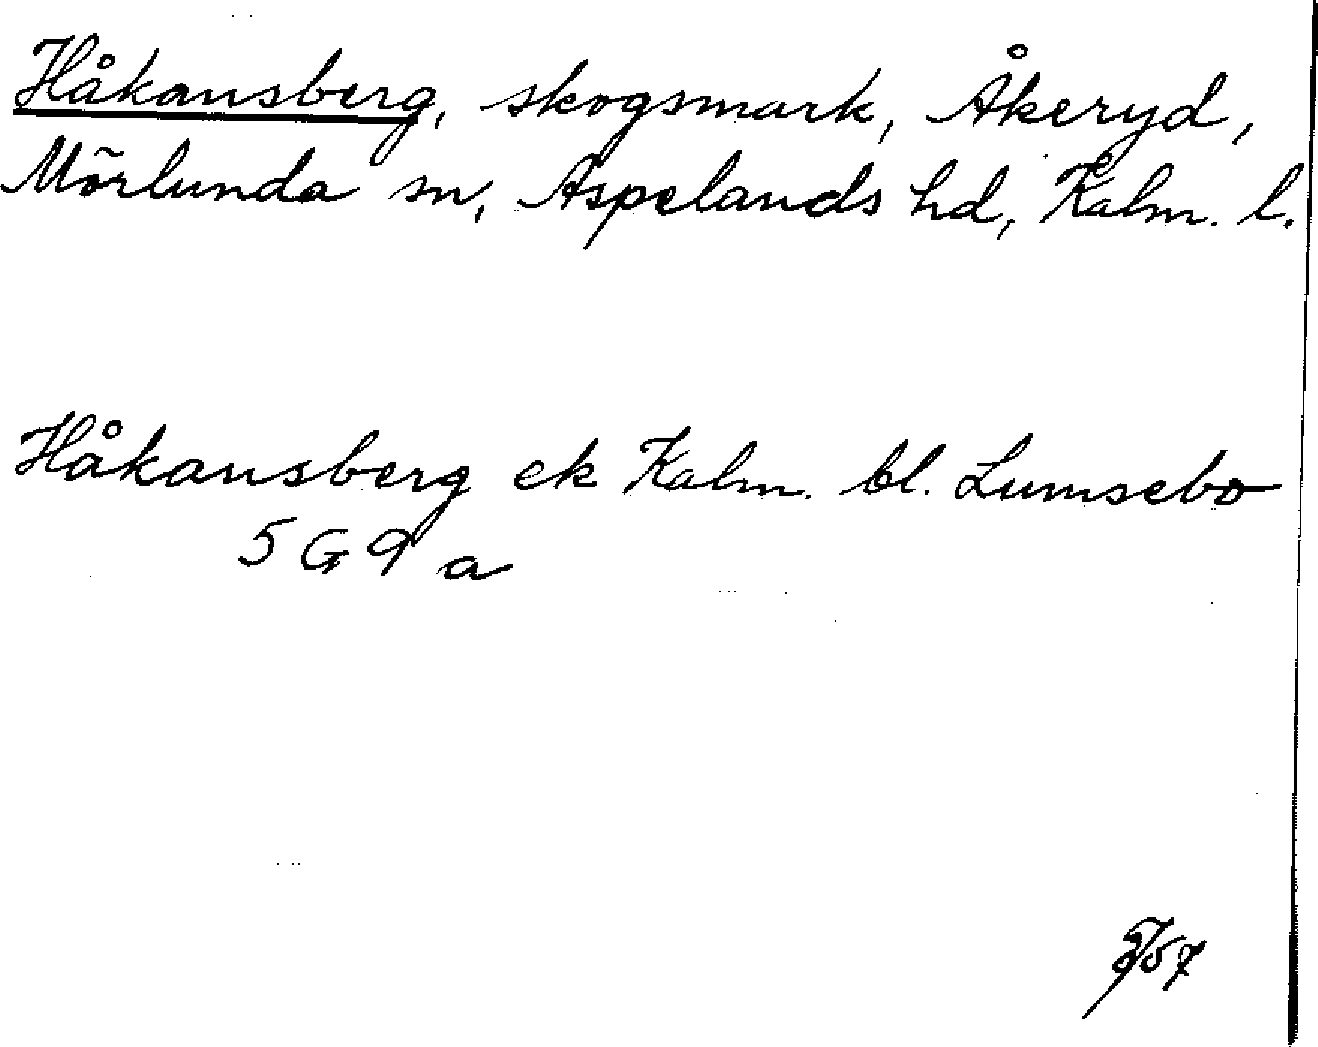 Håkansberg, skogsmark, Åkeryd,
Mörlunda sn, Aspelands hd, Kalm. l.
Håkansberg ek Kalm. bl. Lumsebo
5 G 9 a